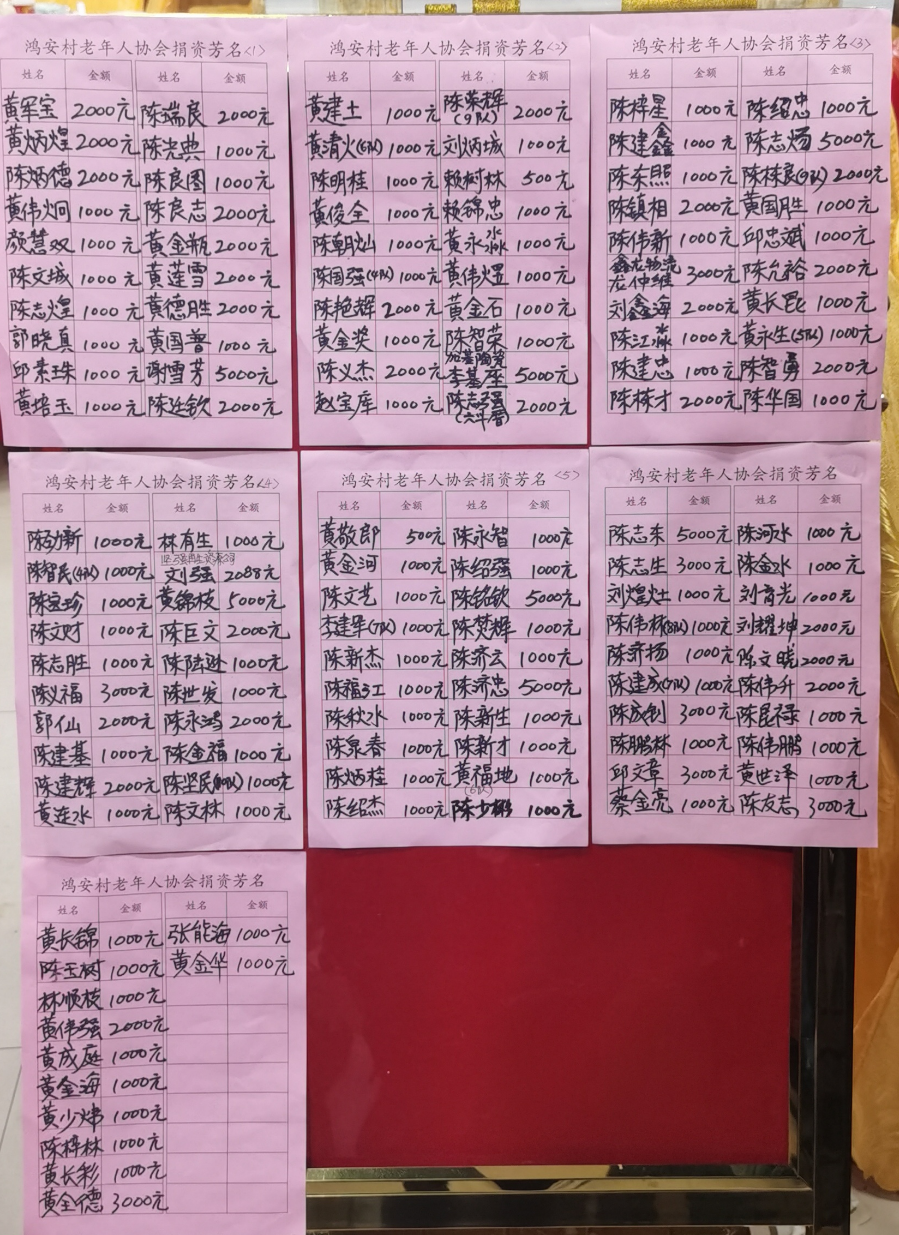 鸿安村老年人协会捐资芳名<1>
姓名 金额 姓名 金额
黄军宝 2000元 陈瑞良 2000元
黄炳煌 2000元 陈光典 1000元
陈炳德 2000元 陈良图 1000元
黄伟炯 1000元 陈良志 2000元
颜慧双 1000元 黄金瓶 2000元
陈文城 1000元 黄莲雪 2000元
陈志煌 1000元 黄德胜 2000元
郭晓真 1000元 黄国普 1000元
邱素珠 1000元 谢雪芳 5000元
黄培玉 1000元 陈连钦 2000元
鸿安村老年人协会捐资芳名<2>
姓名 金额 姓名 金额
黄建土 1000元 陈荣辉(9队) 2000元
黄清火(6队) 1000元 刘炳城 1000元
陈明桂 1000元 赖树林 500元
黄俊全 1000元 赖锦忠 1000元
陈朝灿 1000元 黄永淼 1000元
陈国强(4队) 1000元 黄伟煜 1000元
陈艳辉 2000元 黄金石 1000元
黄金奖 1000元 陈智荣 1000元
陈义杰 2000元 李基座 5000元
赵宝库 1000元 陈志强 2000元
鸿安村老年人协会捐资芳名<3>
姓名 金额 姓名 金额
陈梓星 1000元 陈绍忠 1000元
陈建鑫 1000元 陈志炀 5000元
陈东照 1000元 陈栋良(9队) 2000元
陈镇相 2000元 黄国胜 1000元
陈伟新 1000元 邱忠斌 1000元
鑫龙物流 龙仲维 3000元 陈允裕 2000元
刘鑫海 2000元 黄长昆 1000元
陈江淼 1000元 黄永生(5队) 1000元
陈建忠 1000元 陈智勇 2000元
陈栋才 2000元 陈华国 1000元
鸿安村老年人协会捐资芳名<4>
姓名 金额 姓名 金额
陈劲新 1000元 林有生 1000元
陈智民(4队) 1000元 刘强 2088元
陈宝珍 1000元 黄锦枝 5000元
陈文财 1000元 陈巨文 2000元
陈志胜 1000元 陈陆逊 1000元
陈义福 3000元 陈世发 1000元
郭仙 2000元 陈永鸿 2000元
陈建基 1000元 陈金福 1000元
陈建辉 2000元 陈坚民 1000元
黄连水 1000元 陈文林 1000元
鸿安村老年人协会捐资芳名<5>
姓名 金额 姓名 金额
黄敬郎 500元 陈永智 1000元
黄金河 1000元 陈绍强 1000元
陈文艺 1000元 陈铭钦 5000元
李建军(7队) 1000元 陈焚辉 1000元
陈新杰 1000元 陈济云 1000元
陈福江 1000元 陈济忠 5000元
陈秋水 1000元 陈新生 1000元
陈泉春 1000元 陈新才 1000元
陈炳桂 1000元 黄福地(6队) 1000元
陈绍杰 1000元 陈少彬 1000元
鸿安村老年人协会捐资芳名
姓名 金额 姓名 金额
陈志东 5000元 陈河水 1000元
陈志生 3000元 陈金水 1000元
刘煌灶 1000元 刘育光 1000元
陈伟林(8队) 1000元 刘耀坤 2000元
陈济扬 1000元 陈文晓 2000元
陈建成(9队) 1000元 陈伟升 2000元
陈成钊 3000元 陈民禄 1000元
陈鹏林 1000元 陈伟鹏 1000元
邱文章 3000元 黄世泽 1000元
蔡金亮 1000元 陈友志 3000元
鸿安村老年人协会捐资芳名
姓名 金额 姓名 金额
黄长锦 1000元 张能海 1000元
陈玉树 1000元 黄金华 1000元
林顺枝 1000元
黄伟强 2000元
黄成庭 1000元
黄金海 1000元
黄少炜 1000元
陈梓林 1000元
黄长彩 1000元
黄全德 3000元